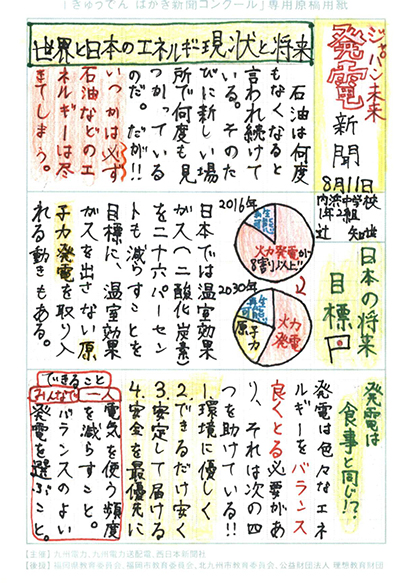 「きゅうでん はがき新聞コンクール」専用原稿用紙
ジャパン未来
発電
新聞
8月11日
内浜中学校
1年2組
辻 知世
世界と日本のエネルギー現状と将来
石油は何度
もなくなると
言われ続けて
いる。そのた
びに新しい場
所で何度も見
つかっている
のだ。だが!!
いつかは必ず
石油などのエ
ネルギーは尽
きてしまう。
日本の将来
目標
2016年
再生可能
火力発電が
8割り以上!!
2030年
再生可能
原子力
火力
発電
日本では温室効果
ガス(二酸化炭素)
を二十六パーセン
トも減らすことを
目標に、温室効果
ガスを出さない原
子力発電を取り入
れる動きもある。
発電は
食事と同じ!?
発電は色々なエネ
ルギーをバランス
良くとる必要があ
り、それは次の四
つを助けている!!
1.環境に優しく
2.できるだけ安く
3.安定して届ける
4.安全を最優先に
できること
みんなで一人一人
電気を使う頻度
を減らすこと。
バランスのよい
発電を選ぶこと。
【主催】九州電力、九州電力送配電、西日本新聞社
【後援】福岡県教育委員会、福岡市教育委員会、北九州市教育委員会、公益財団法人 理想教育財団